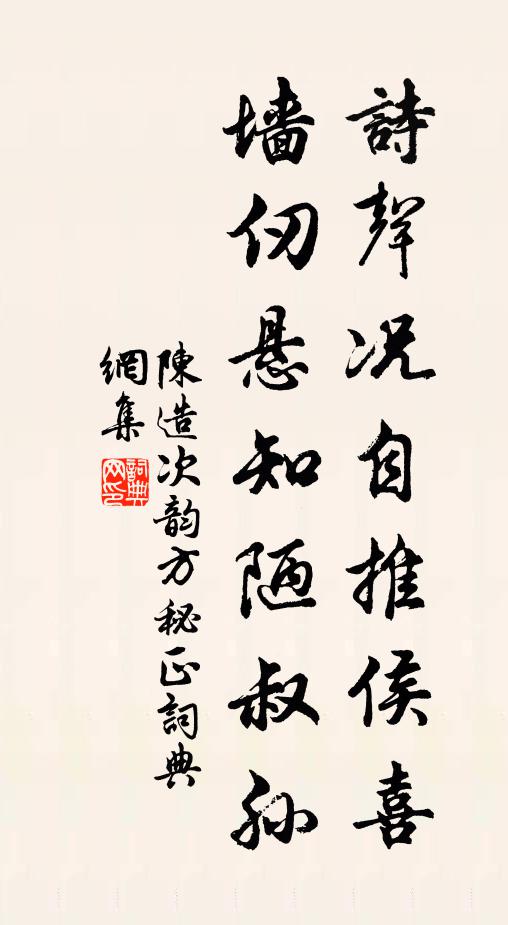 詩聲况自推侯喜
墻仞悬知陋叔孫
陳造次韵方秘正詞典
網集
詞典网印